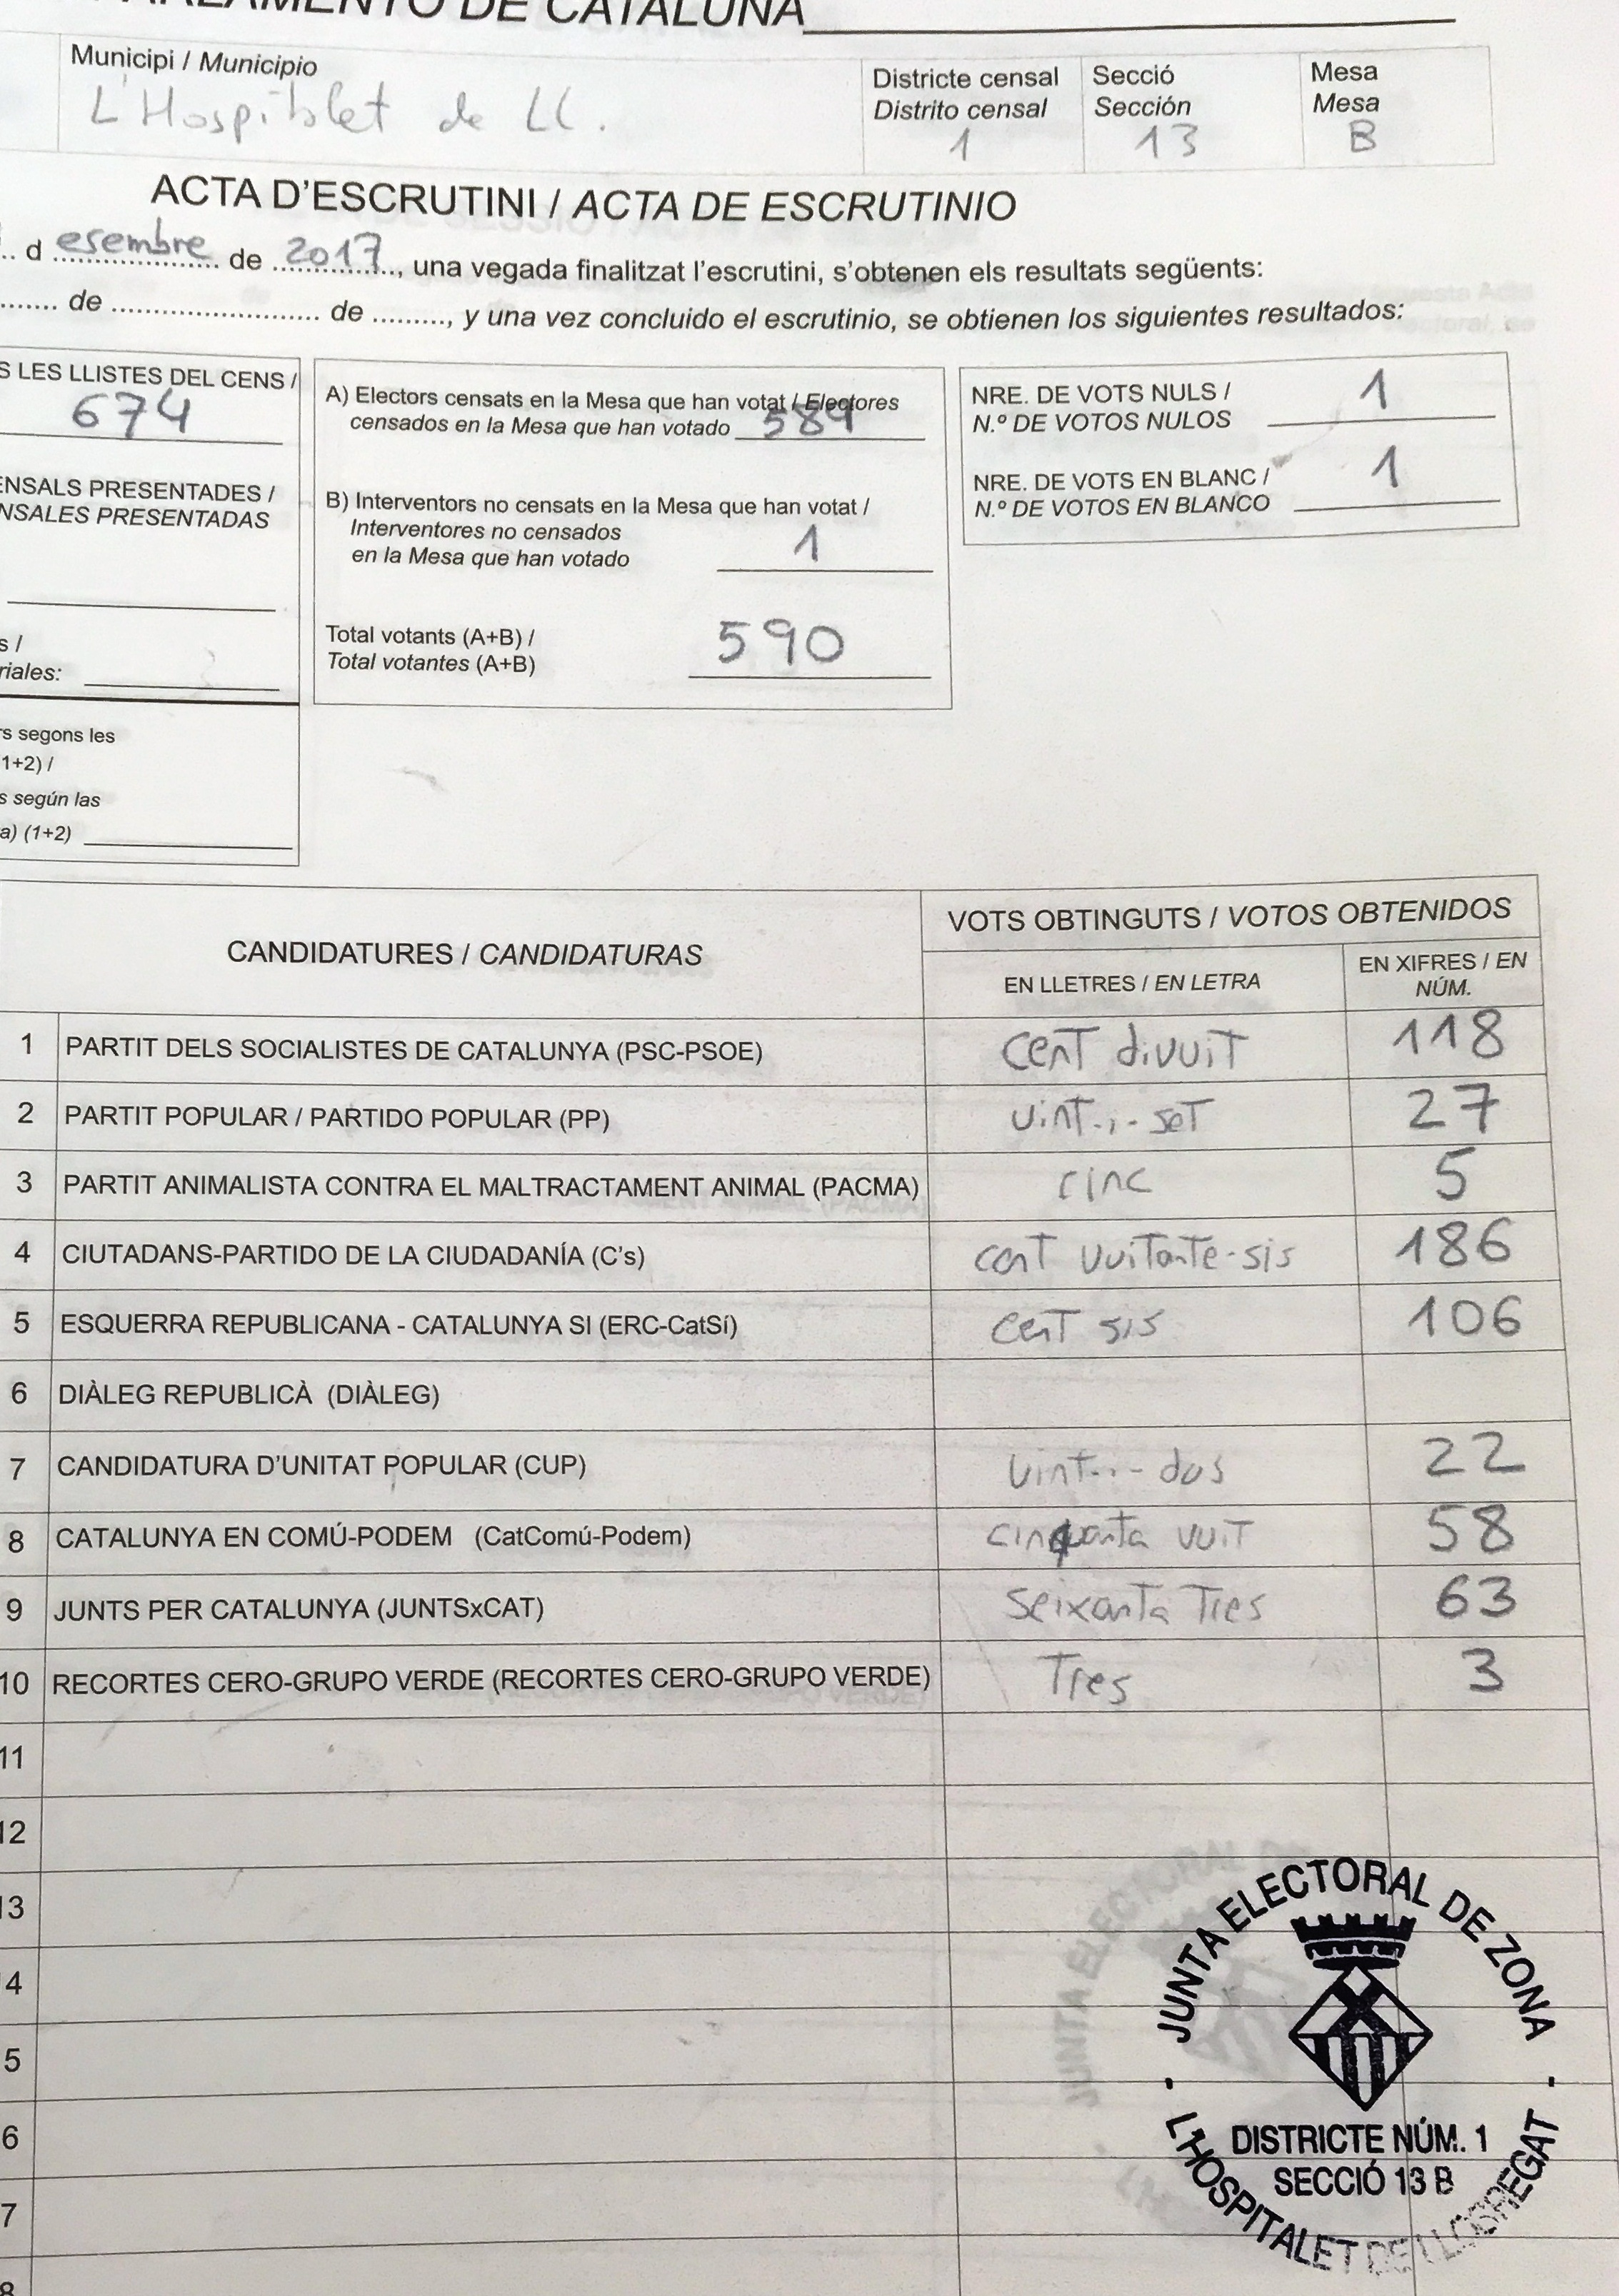 PARLAMENTO DE CATALUÑA
Municipi / Municipio
L'Hospitalet de Ll.
Districte censal
Distrito censal
1
Secció
Sección
13
Mesa
Mesa
B
ACTA D'ESCRUTINI / ACTA DE ESCRUTINIO
d esembre de 2017, una vegada finalitzat l'escrutini, s'obtenen els resultats següents:
de ........................ de ........., y una vez concluido el escrutinio, se obtienen los siguientes resultados:
S LES LLISTES DEL CENS /
674
ENSALS PRESENTADES /
NSALES PRESENTADAS
s /
riales:
rs segons les
1+2) /
s según las
a) (1+2)
A) Electors censats en la Mesa que han votat / Electores
censados en la Mesa que han votado 589
B) Interventors no censats en la Mesa que han votat /
Interventores no censados
en la Mesa que han votado 1
Total votants (A+B) /
Total votantes (A+B) 590
NRE. DE VOTS NULS /
N.º DE VOTOS NULOS 1
NRE. DE VOTS EN BLANC /
N.º DE VOTOS EN BLANCO 1
CANDIDATURES / CANDIDATURAS
VOTS OBTINGUTS / VOTOS OBTENIDOS
EN LLETRES / EN LETRA
EN XIFRES / EN
NÚM.
1 PARTIT DELS SOCIALISTES DE CATALUNYA (PSC-PSOE) cent divuit 118
2 PARTIT POPULAR / PARTIDO POPULAR (PP) vint-i-set 27
3 PARTIT ANIMALISTA CONTRA EL MALTRACTAMENT ANIMAL (PACMA) cinc 5
4 CIUTADANS-PARTIDO DE LA CIUDADANÍA (C's) cent vuitante-sis 186
5 ESQUERRA REPUBLICANA - CATALUNYA SI (ERC-CatSí) cent sis 106
6 DIÀLEG REPUBLICÀ (DIÀLEG)
7 CANDIDATURA D'UNITAT POPULAR (CUP) vint-i-dos 22
8 CATALUNYA EN COMÚ-PODEM (CatComú-Podem) cinquanta vuit 58
9 JUNTS PER CATALUNYA (JUNTSxCAT) seixanta tres 63
10 RECORTES CERO-GRUPO VERDE (RECORTES CERO-GRUPO VERDE) Tres 3
11
12
13
4
5
6
7
8
JUNTA ELECTORAL DE ZONA
DISTRICTE NÚM. 1
SECCIÓ 13 B
L'HOSPITALET DE LLOBREGAT